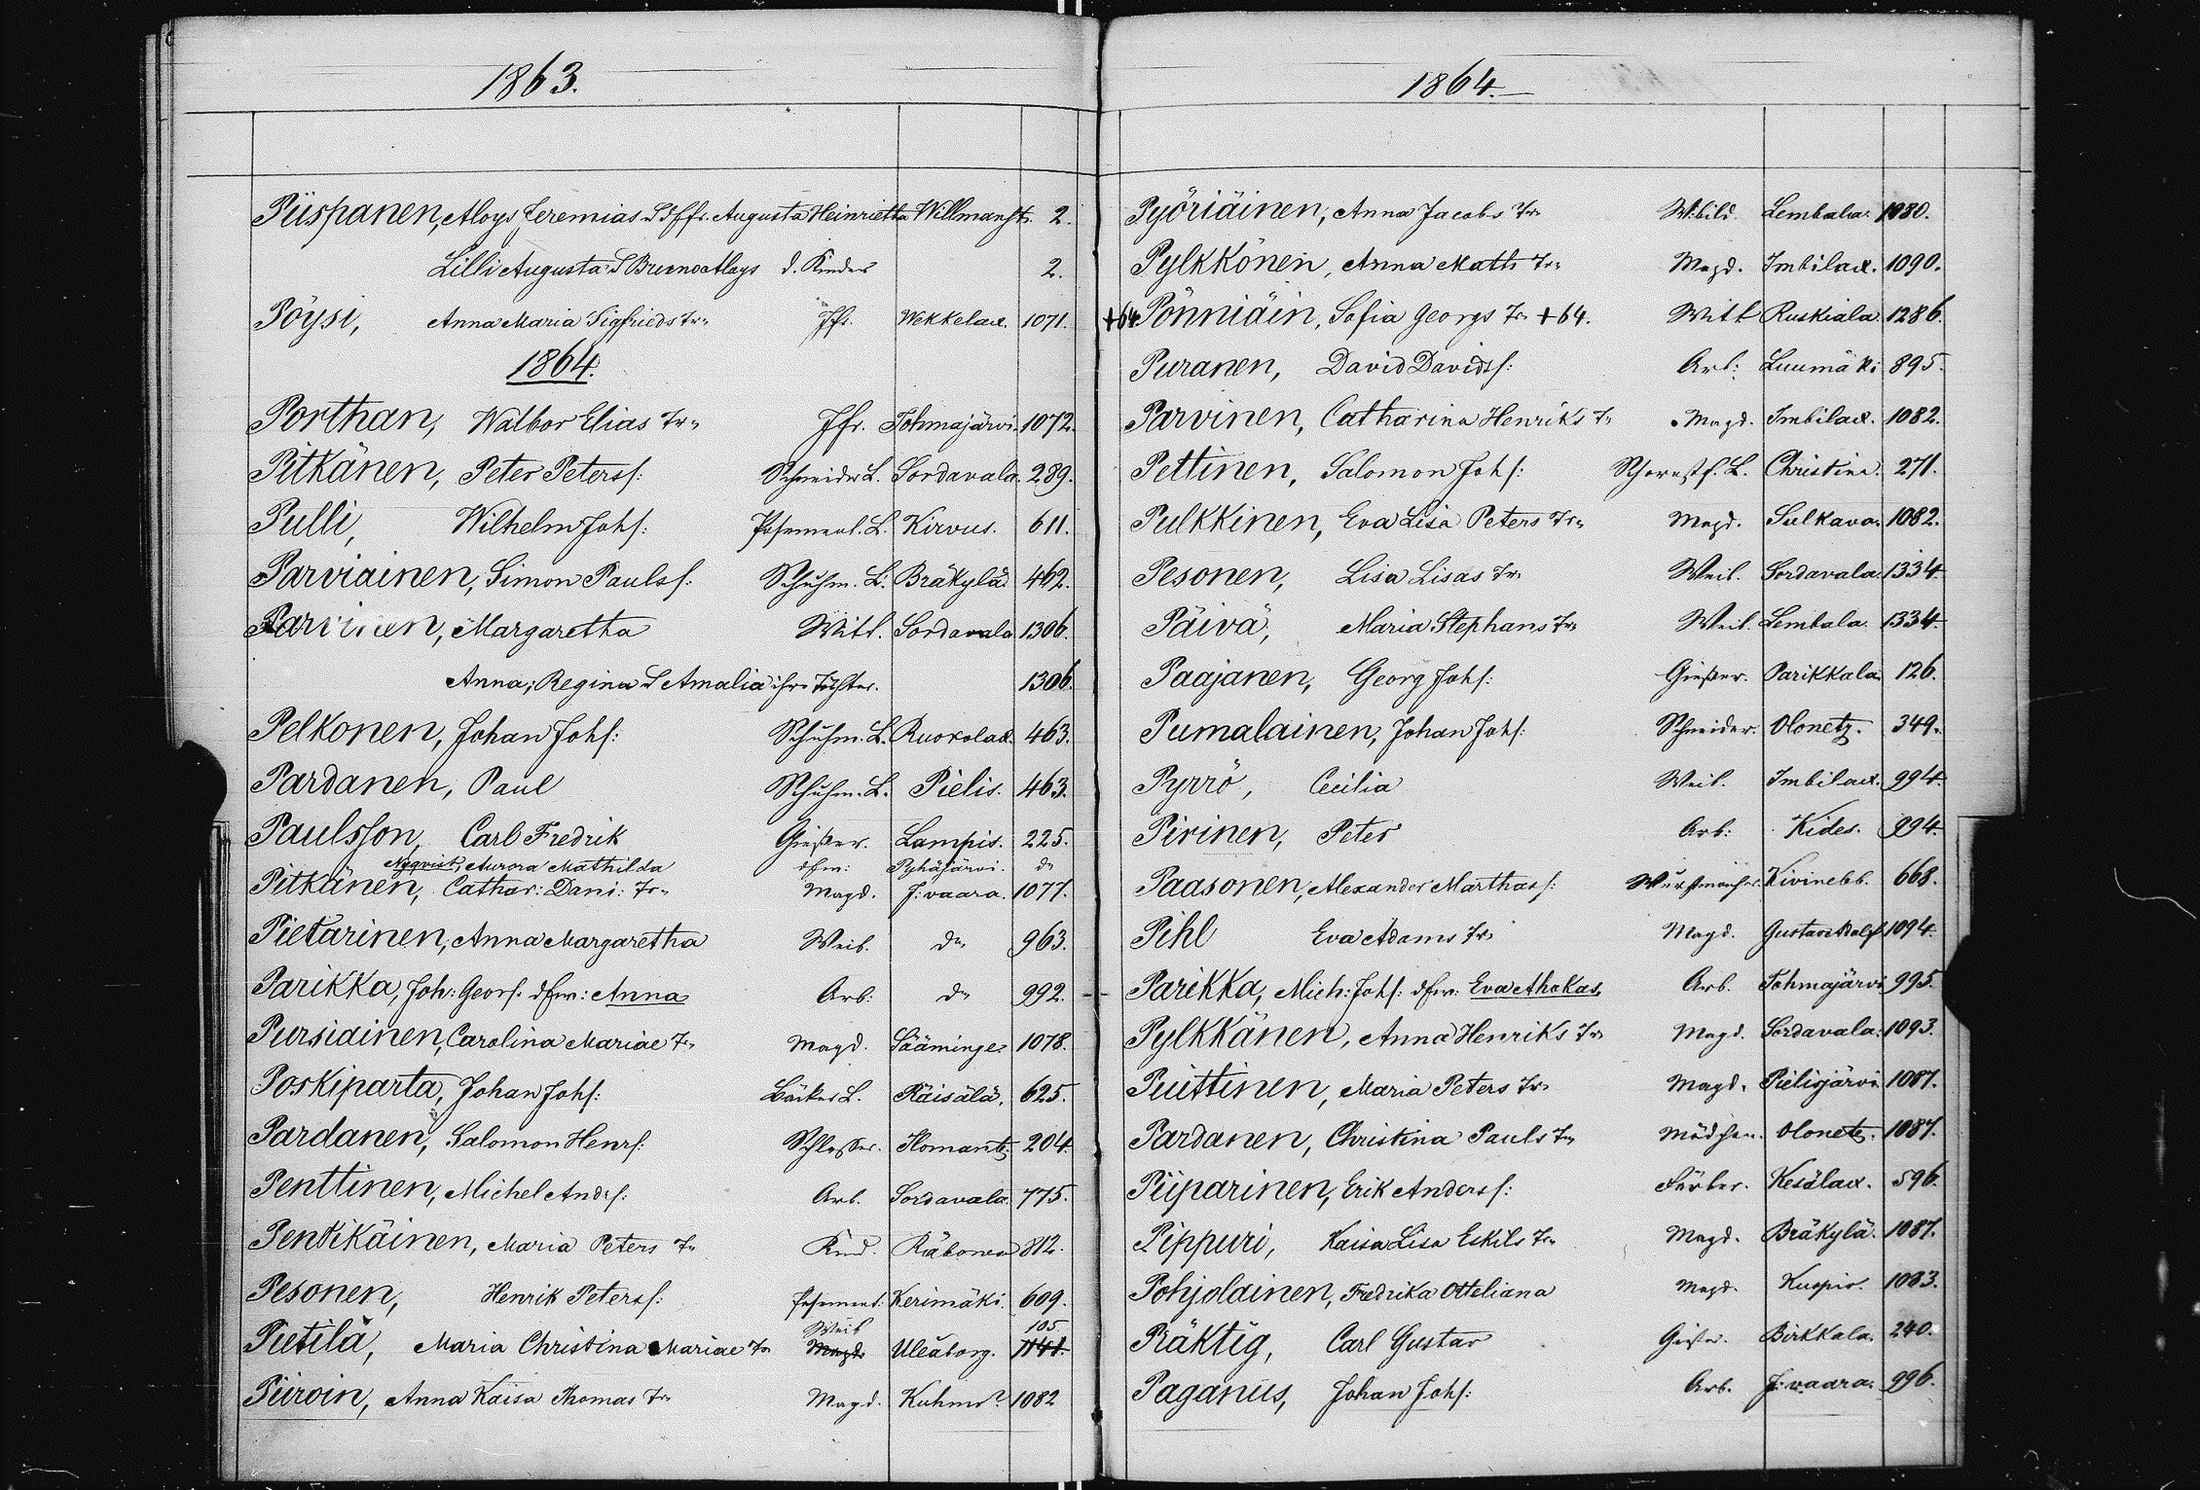 1863.
Piispanen, Aloys Jeremias & dff. Augusta Heinrietta Willmanst. 2.
Lilli Augusta & Bruno Aloys d. Kinder 2.
Pöysi, Anna Maria Sigfrieds Tr. Jfr. Wekkelax. 1071.
1864.
Porthan, Walbor Elias Tr. Jfr. Tohmajärvi. 1072.
Pitkänen, Peter Peterss: Schneider L. Sordavala. 289.
Pulli, Wilhelm Johs: Posement. L. Kirvus. 611.
Parviainen, Simon Paulss: Schuhm. L. Bräkylä. 462.
Parvinen, Margaretha Witt. Sordavala 1306.
Anna, Regina & Amalia ihre Töchter. 1306.
Pelkonen, Johan Johs: Schuhm. L. Ruokolax. 463.
Pardanen, Paul Schuhm. L. Pielis. 463.
Paulsson, Carl Fredrik Gießer. Lampis. 225.
Nyqvist, Aurora Mathilda dfrn: Pyhäjärvi. do
Pitkänen, Cathar: Dani: Tr. Magd. J:vaara. 1077.
Pietarinen, Anna Margaretha Weib. do 963.
Parikka, Joh: Geors. dfrn: Anna Arb: do 992.
Pursiainen, Carolina Mariae Tr. Magd. Sääminge. 1078.
Poskiparta, Johan Johs: Bäcker L. Räisälä. 625.
Pardanen, Salomon Henrs: Schloßer. Ilomants. 204.
Penttinen, Michel Andrs: Arb. Sordavala. 775.
Pentikäinen, Maria Peters Tr. Kind. Räbowa 812.
Pesonen, Henrik Peterss: Posement: Kerimäki. 609.
Weib 105
Pietilä, Maria Christina Mariae Tr. Magd. Uleåborg. 1141.
Piiroin, Anna Kaisa Thomas Tr. Magd. Kuhmo? 1082
1864.
Pyöriäinen, Anna Jacobs Tr. Lembala. 1080.
Pylkkönen, Anna Matts Tr. Magd. Imbilax. 1090.
+64 Pönniäin, Sofia Georgs Tr. +64. Witt Ruskiala. 1286.
Puranen, David Davids: Arb: Luumäki 895.
Parvinen, Catharina Henriks Tr. Magd. Imbilax. 1082.
Pettinen, Salomon Johs: Schornstf. L. Christina. 271.
Pulkkinen, Eva Lisa Peters Tr. Magd. Sulkava. 1082.
Pesonen, Lisa Lisas Tr. Weib. Sordavala. 1334.
Päivä, Maria Stephans Tr. Weib. Lembala. 1334.
Paajanen, Georg Johs: Gießer. Parikkala. 126.
Pumalainen, Johan Johs: Schneider. Olonetz. 349.
Pyrrö, Cecilia Weib. Imbilax. 994.
Pirinen, Peter Arb: Kides. 994.
Paasonen, Alexander Marthass: Wurstmacher. Kivinebb. 668.
Pihl Eva Adams Tr. Magd. Gustav Adolf 1094.
Parikka, Mich: Johs: dfrn: Eva Ahokas Arb. Tohmajärvi 995.
Pylkkänen, Anna Henriks Tr. Magd. Sordavala. 1093.
Puittinen, Maria Peters Tr. Magd. Pielisjärvi. 1087.
Pardanen, Christina Pauls Tr. Mädchen. Olonetz. 1087.
Piiparinen, Erik Anderss: Färber. Kesälax. 596.
Pippuri, Kaisa Lisa Eskils Tr. Magd. Bräkylä. 1087.
Pohjolainen, Fredrika Otteliana Magd. Kuopio. 1083.
Präktig, Carl Gustav Gießer. Birkkala. 240.
Paganus, Johan Johs: Arb. J:vaara. 996.